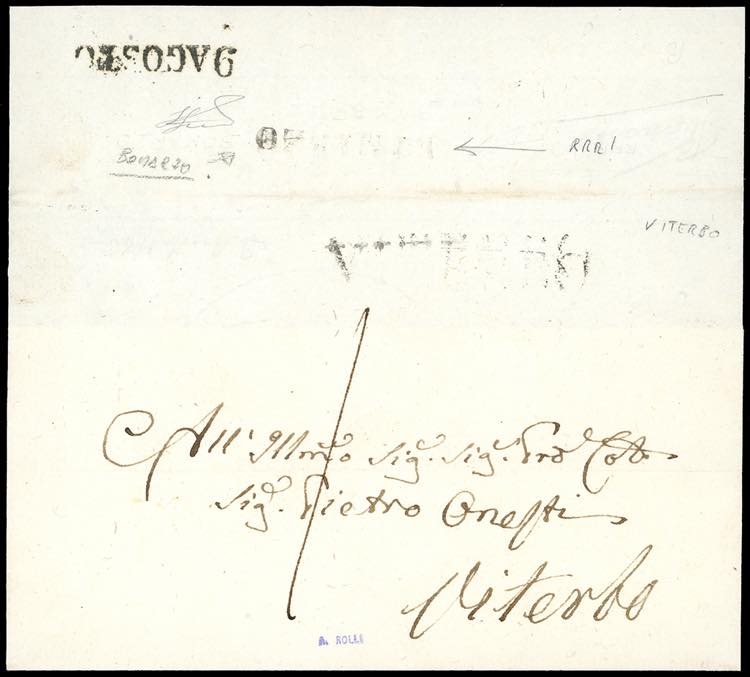 9 AGOSTO
BOMARZO
RRR!
VITERBO
VITERBO
1
All' Illmo Sig.e Sig.e Prõe Col
Sig.e Pietro Onesti
Viterbo
A. ROLLI